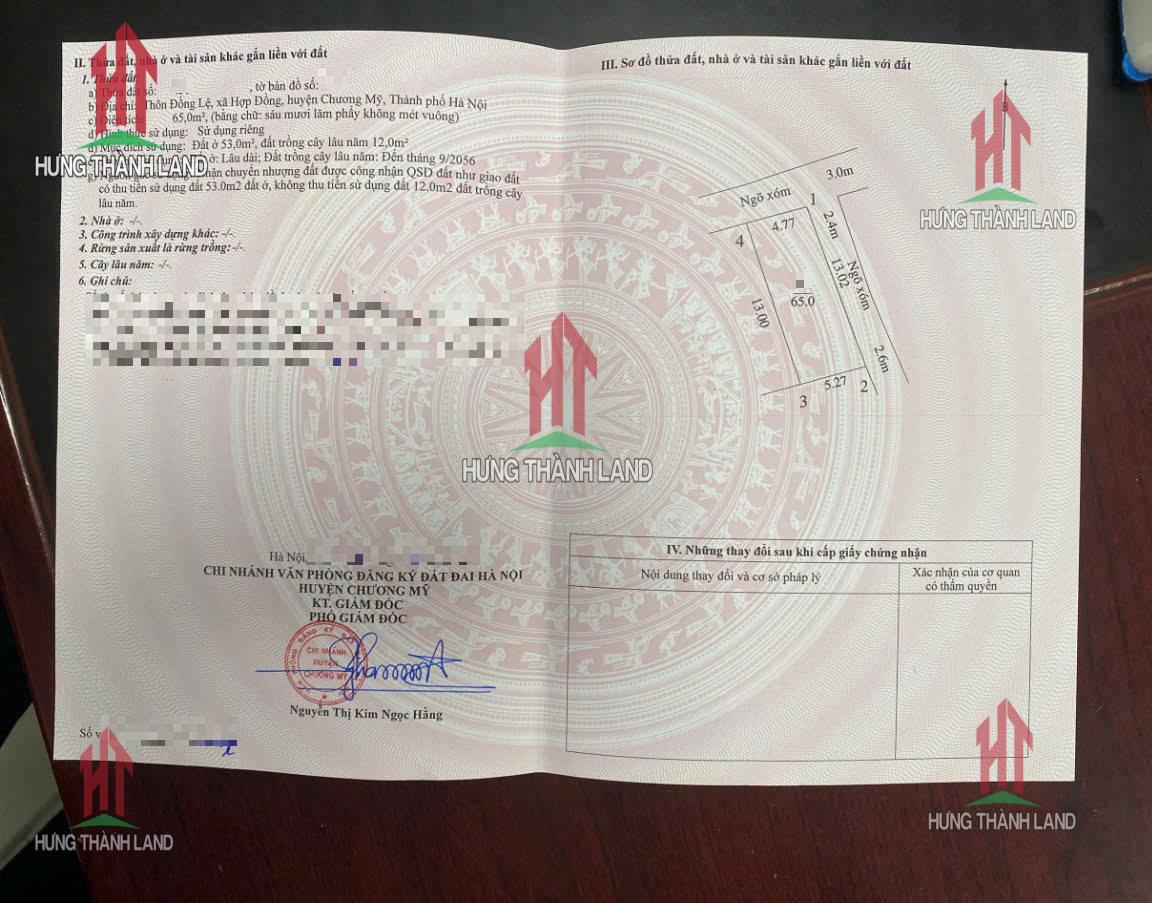 II. Thửa đất, nhà ở và tài sản khác gắn liền với đất
1. Thửa đất:
a) Thửa đất số: , tờ bản đồ số:
b) Địa chỉ: Thôn Đồng Lệ, xã Hợp Đồng, huyện Chương Mỹ, Thành phố Hà Nội
c) Diện tích: 65,0m², (bằng chữ: sáu mươi lăm phẩy không mét vuông)
d) Hình thức sử dụng: Sử dụng riêng
đ) Mục đích sử dụng: Đất ở 53,0m², đất trồng cây lâu năm 12,0m²
ở: Lâu dài; Đất trồng cây lâu năm: Đến tháng 9/2056
g) Nguồn gốc sử dụng: Nhận chuyển nhượng đất được công nhận QSD đất như giao đất
có thu tiền sử dụng đất 53.0m2 đất ở, không thu tiền sử dụng đất 12.0m2 đất trồng cây
lâu năm.
2. Nhà ở: -/-.
3. Công trình xây dựng khác: -/-.
4. Rừng sản xuất là rừng trồng:-/-.
5. Cây lâu năm: -/-.
6. Ghi chú:
Hà Nội,
CHI NHÁNH VĂN PHÒNG ĐĂNG KÝ ĐẤT ĐAI HÀ NỘI
HUYỆN CHƯƠNG MỸ
KT. GIÁM ĐỐC
PHÓ GIÁM ĐỐC
CHI NHÁNH
HUYỆN
CHƯƠNG MỸ
Nguyễn Thị Kim Ngọc Hằng
Số v
III. Sơ đồ thửa đất, nhà ở và tài sản khác gắn liền với đất
B
3.0m
Ngõ xóm
1
4.77
2.4m
4
13.02
Ngõ xóm
65,0
13.00
2.6m
5.27
2
3
IV. Những thay đổi sau khi cấp giấy chứng nhận
Nội dung thay đổi và cơ sở pháp lý
Xác nhận của cơ quan
có thẩm quyền
HƯNG THÀNH LAND
HƯNG THÀNH LAND
HƯNG THÀNH LAND
HƯNG THÀNH LAND
HƯNG THÀNH LAND